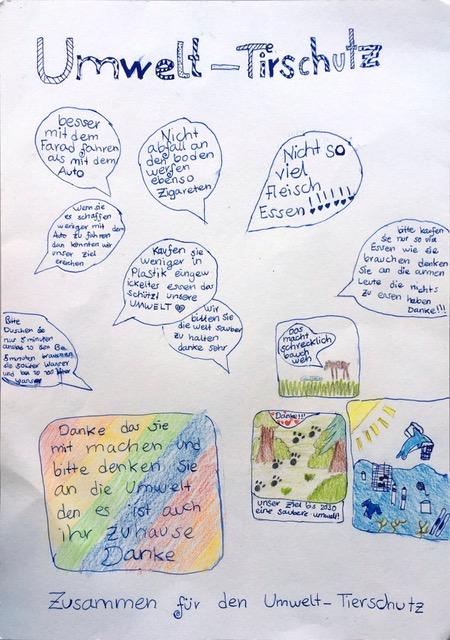 Umwelt-Tierschutz
besser
mit dem
Farad fahren
als mit dem
Auto
Nicht
abfall an
den boden
werfen
ebenso
Zigareten
Nicht so
viel
Fleisch
Essen !!!!!!!
Wenn sie
es schaffen
weniger mit dem
Auto zu fahren
dan könnten wir
unser Ziel
ereichen
Kaufen sie
weniger in
Plastik eingew
ickeltes essen das
schützt unsere
UMWELT
bitte kaufen
Sie nur so viel
Essen wie die
brauchen denken
Sie an die armen
Leute die nichts
zu essen haben
Danke!!!
wir
bitten Sie
die welt sauber
zu halten
danke sehr
Bitte
Duschen Sie
nur 5 minuten
anstat 10 den Bei
5 minuten
sie Wasser
und bei 10
Wasser
Das
macht
schrecklich
bauch
weh
Danke das Sie
mit machen und
bitte denken Sie
an die Umwelt
den es ist auch
ihr zuhause
Danke
Danke!!!
unser Ziel bis 2030
eine saubere umwelt!
Zusammen für den Umwelt-Tierschutz